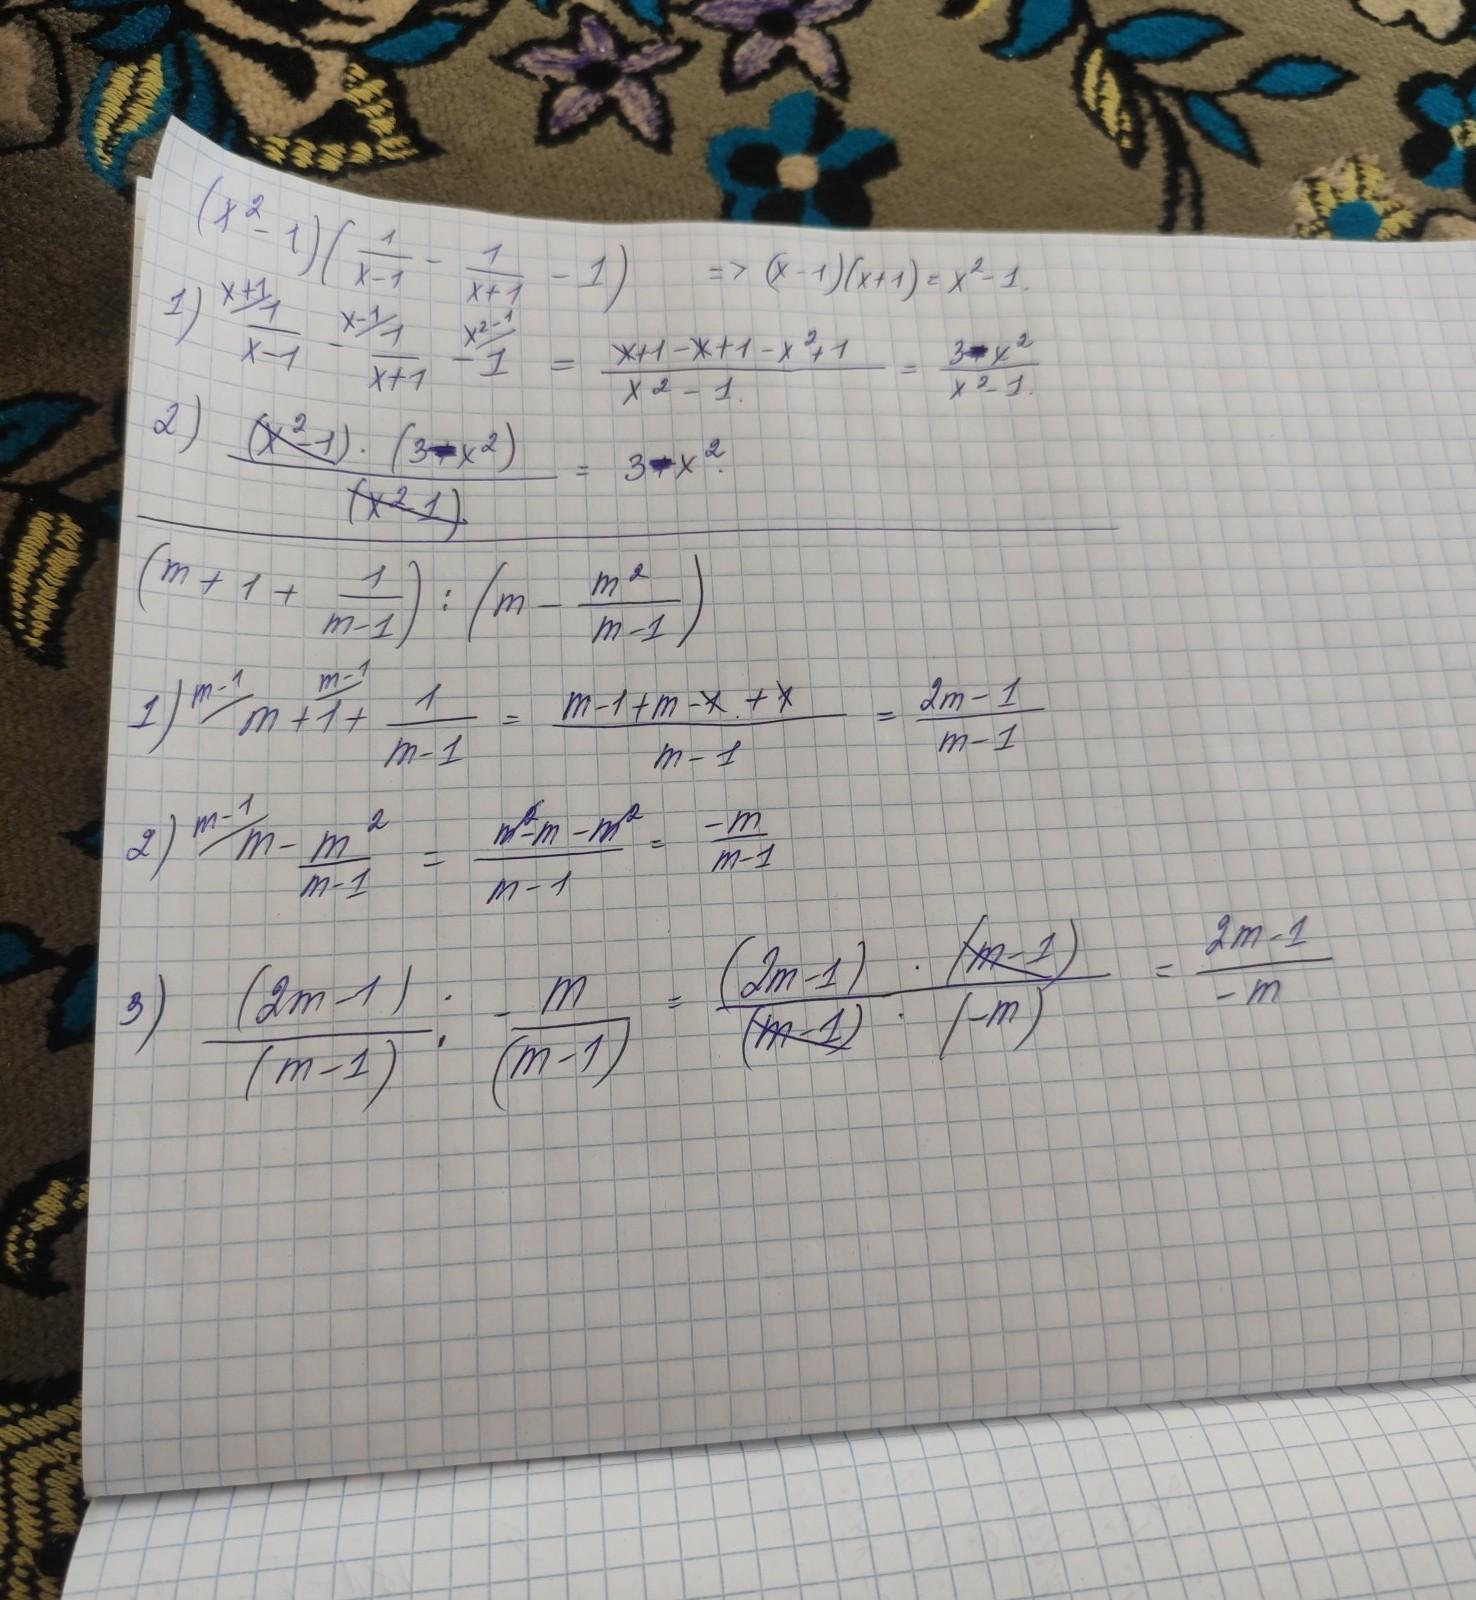 (x² - 1)(1/(x-1) - 1/(x+1) - 1) => (x-1)(x+1) = x² - 1.
1) x+1/ 1/(x-1) - x-1/ 1/(x+1) - x²-1/ 1 = (x+1-x+1-x²+1)/(x² - 1.) = (3-x²)/(x²-1.)
2) ((x²-1) · (3-x²))/(x²-1) = 3-x².
(m + 1 + 1/(m-1)) : (m - m²/(m-1))
1) m-1/ m + m-1/ 1 + 1/(m-1) = (m-1+m-1+1)/(m-1) = (2m-1)/(m-1)
2) m-1/ m - m²/(m-1) = (m²-m-m²)/(m-1) = -m/(m-1)
3) (2m-1)/(m-1) : -m/(m-1) = ((2m-1) · (m-1))/((m-1) · (-m)) = (2m-1)/(-m)